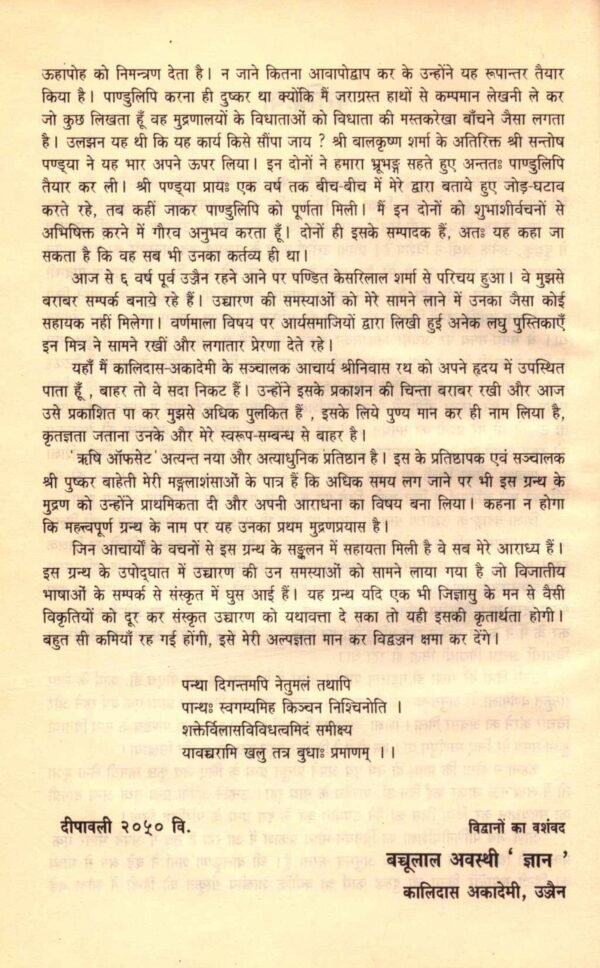 ऊहापोह को निमन्त्रण देता है। न जाने कितना आवापोद्वाप कर के उन्होंने यह रूपान्तर तैयार
किया है। पाण्डुलिपि करना ही दुष्कर था क्योंकि मैं जराग्रस्त हाथों से कम्पमान लेखनी ले कर
जो कुछ लिखता हूँ वह मुद्रणालयों के विधाताओं को विधाता की मस्तकरेखा बाँचने जैसा लगता
है। उलझन यह थी कि यह कार्य किसे सौंपा जाय ? श्री बालकृष्ण शर्मा के अतिरिक्त श्री सन्तोष
पण्ड्या ने यह भार अपने ऊपर लिया। इन दोनों ने हमारा भ्रूभङ्ग सहते हुए अन्ततः पाण्डुलिपि
तैयार कर ली। श्री पण्ड्या प्रायः एक वर्ष तक बीच-बीच में मेरे द्वारा बताये हुए जोड़-घटाव
करते रहे, तब कहीं जाकर पाण्डुलिपि को पूर्णता मिली। मैं इन दोनों को शुभाशीर्वचनों से
अभिषिक्त करने में गौरव अनुभव करता हूँ। दोनों ही इसके सम्पादक हैं, अतः यह कहा जा
सकता है कि वह सब भी उनका कर्तव्य ही था।
आज से ६ वर्ष पूर्व उज्जैन रहने आने पर पण्डित केसरिलाल शर्मा से परिचय हुआ। वे मुझसे
बराबर सम्पर्क बनाये रहे हैं। उच्चारण की समस्याओं को मेरे सामने लाने में उनका जैसा कोई
सहायक नहीं मिलेगा। वर्णमाला विषय पर आर्यसमाजियों द्वारा लिखी हुई अनेक लघु पुस्तिकाएँ
इन मित्र ने सामने रखीं और लगातार प्रेरणा देते रहे।
यहाँ मैं कालिदास-अकादेमी के सञ्चालक आचार्य श्रीनिवास रथ को अपने हृदय में उपस्थित
पाता हूँ , बाहर तो वे सदा निकट हैं। उन्होंने इसके प्रकाशन की चिन्ता बराबर रखी और आज
उसे प्रकाशित पा कर मुझसे अधिक पुलकित हैं , इसके लिये पुण्य मान कर ही नाम लिया है,
कृतज्ञता जताना उनके और मेरे स्वरूप-सम्बन्ध से बाहर है।
'ऋषि ऑफसेट' अत्यन्त नया और अत्याधुनिक प्रतिष्ठान है। इस के प्रतिष्ठापक एवं सञ्चालक
श्री पुष्कर बाहेती मेरी मङ्गलाशंसाओं के पात्र हैं कि अधिक समय लग जाने पर भी इस ग्रन्थ के
मुद्रण को उन्होंने प्राथमिकता दी और अपनी आराधना का विषय बना लिया। कहना न होगा
कि महत्त्वपूर्ण ग्रन्थ के नाम पर यह उनका प्रथम मुद्रणप्रयास है।
जिन आचार्यों के वचनों से इस ग्रन्थ के सङ्कलन में सहायता मिली है वे सब मेरे आराध्य हैं।
इस ग्रन्थ के उपोद्घात में उच्चारण की उन समस्याओं को सामने लाया गया है जो विजातीय
भाषाओं के सम्पर्क से संस्कृत में घुस आई हैं। यह ग्रन्थ यदि एक भी जिज्ञासु के मन से वैसी
विकृतियों को दूर कर संस्कृत उच्चारण को यथावत्ता दे सका तो यही इसकी कृतार्थता होगी।
बहुत सी कमियाँ रह गई होंगी, इसे मेरी अल्पज्ञता मान कर विद्वज्जन क्षमा कर देंगे।
पन्था दिगन्तमपि नेतुमलं तथापि
पान्थः स्वगम्यमिह किञ्चन निश्चिनोति ।
शक्तेर्विलासविविधत्वमिदं समीक्ष्य
यावच्चरामि खलु तत्र बुधाः प्रमाणम् ।।
दीपावली २०५० वि.
विद्वानों का वशंवद
बच्चूलाल अवस्थी ' ज्ञान '
कालिदास अकादेमी, उज्जैन